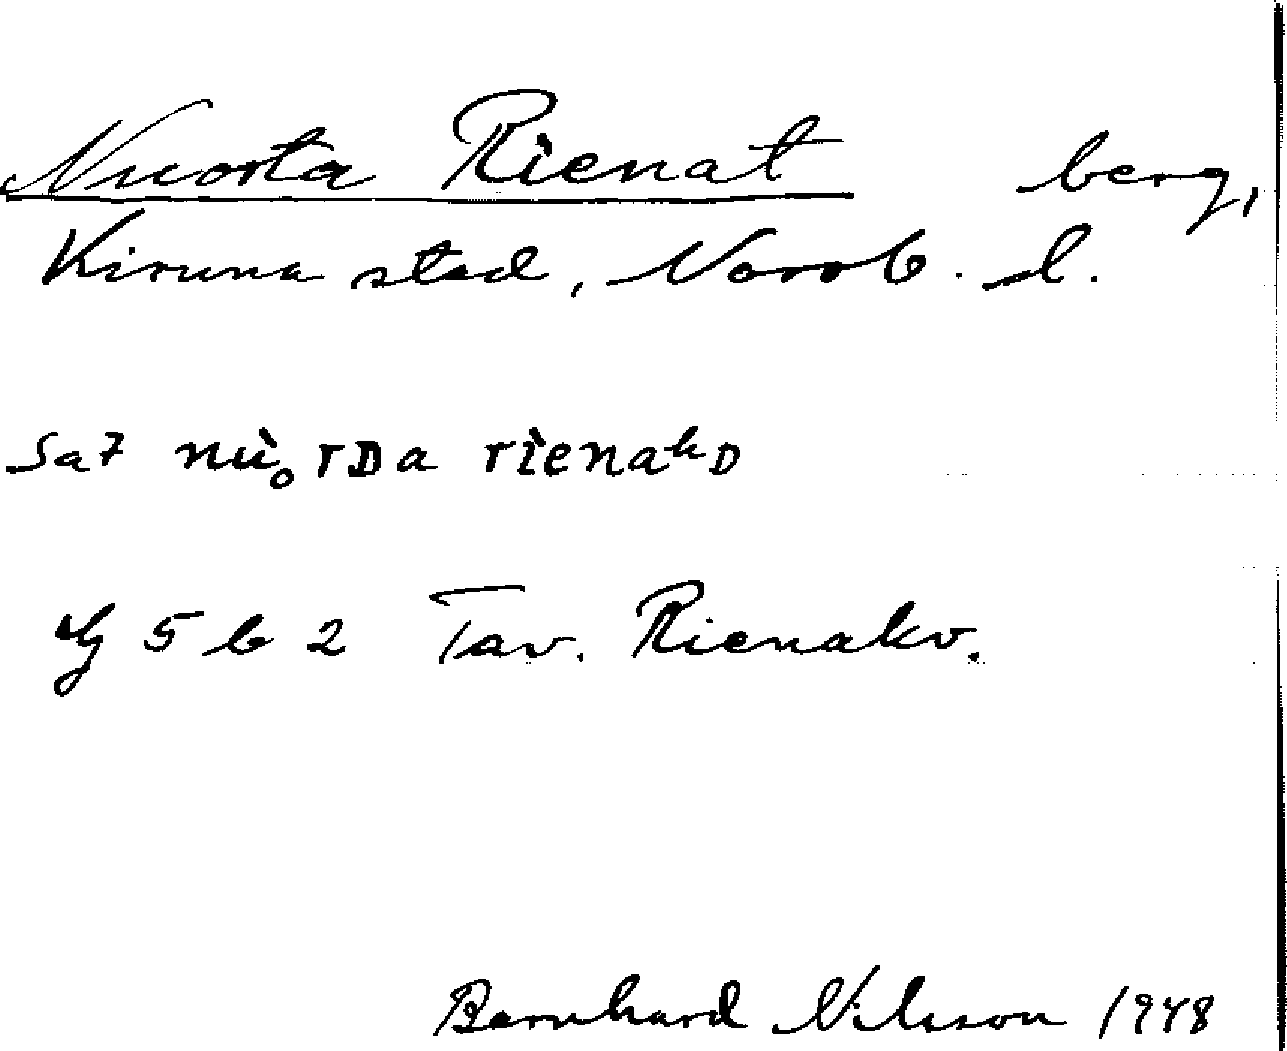 Nuorta Rienat berg,
Kiruna stad, Norrb. l.
sa7 nù̥ɔrDa rìenaᵏD
G 5 b 2 Tav. Rienakv.
Bernhard Nilsson 1948